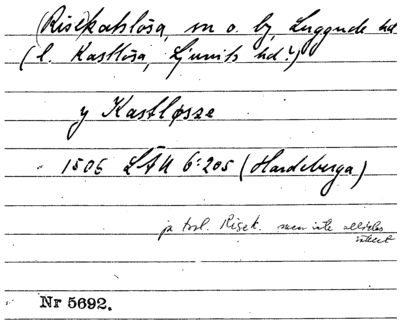 (Rise)katslösa, sn o. by, Luggude hd
(l. Kastlösa, Ljunits hd?)
y Kastløsze
1505 LÄU 6:205 (Hardeberga)
ja trol. Risek. men inte alldeles
säkert
Nr 5692.